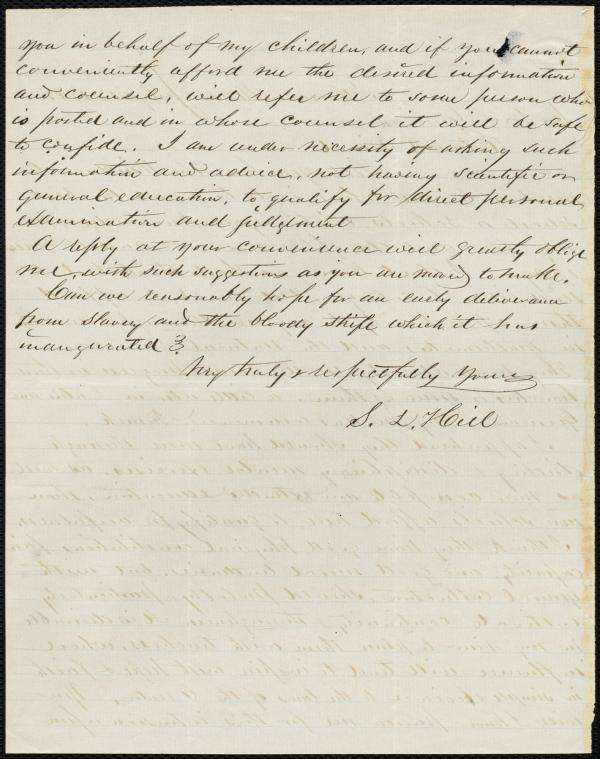 you in behalf of my children, and if you cannot
conveniently afford me the desired information
and counsel, will refer me to some person who
is posted and in whose counsel it will be safe
to confide. I am under necessity of asking such
information and advice, not having scientific or
general education, to qualify for direct personal
examination and judgement
A reply at your convenience will greatly oblige
me, with such suggestions as you are moved to make.
Can we reasonably hope for an early deliverance
from slavery and the bloody strife which it has
inaugurated?
Very truly & respectfully Yours
S. L. Hill